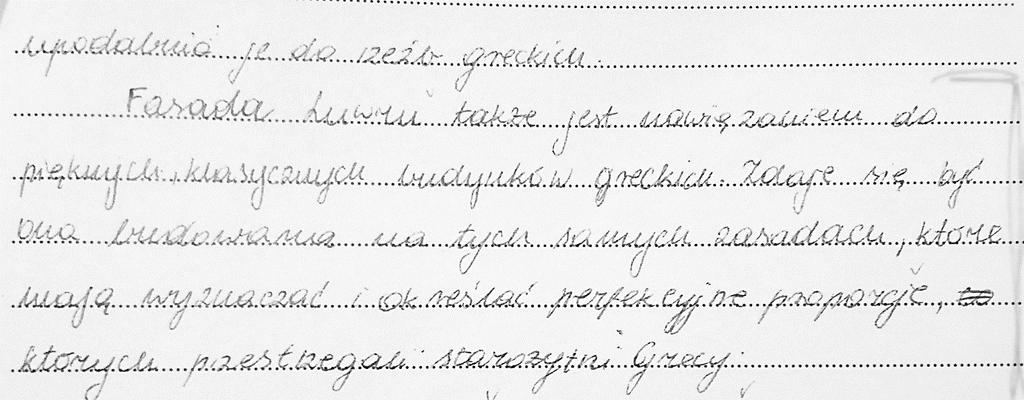 upodabnia je do rzeźb greckich.
Fasada Luwru także jest nawiązaniem do
pięknych, klasycznych budynków greckich. Zdaje się być
ona budowana na tych samych zasadach, które
mają wyznaczać i określać perfekcyjne proporcje,
których przestrzegali starożytni Grecy.